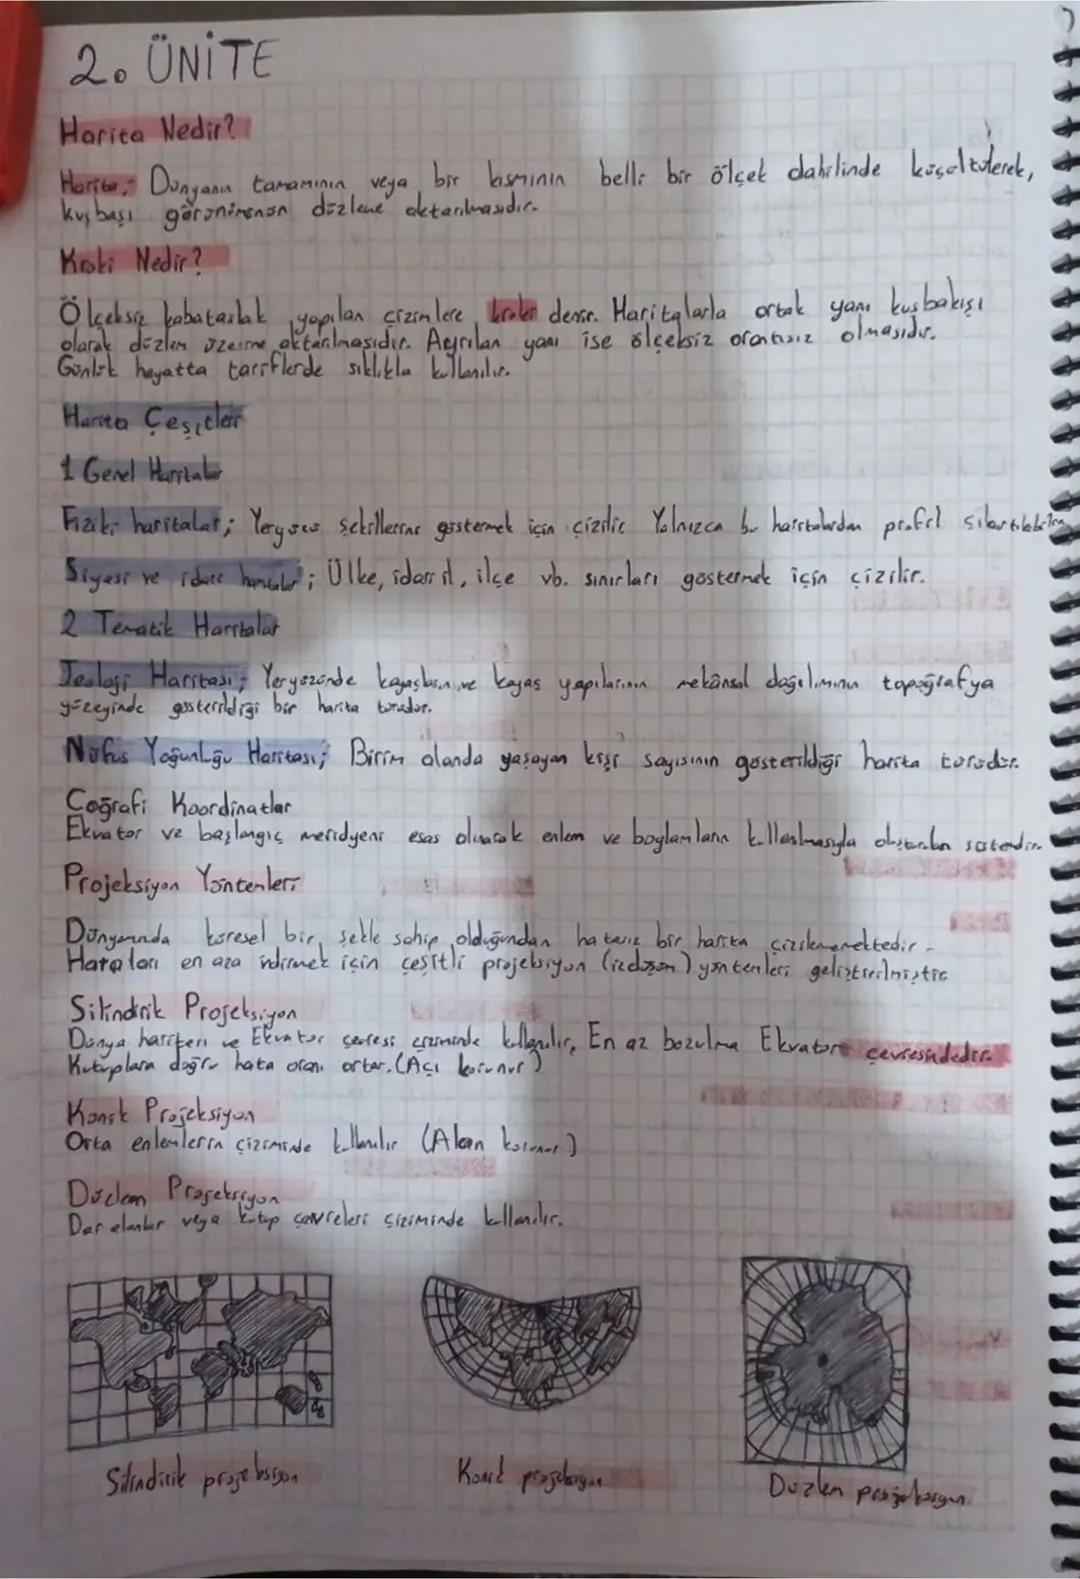 2. ÜNİTE
Harita Nedir?
Harita; Dünyanın tamamının veya bir kısmının belli bir ölçek dahilinde küçültülerek,
kuşbaşı görünümünün düzleme aktarılmasıdır.
Kroki Nedir?
Ölçeksiz kabataslak yapılan çizimlere kroki denir. Haritalarla ortak yanı kuşbakışı
olarak düzlem üzerine aktarılmasıdır. Ayrılan yanı ise ölçeksiz orantısız olmasıdır.
Günlük hayatta tariflerde sıklıkla kullanılır.
Harita Çeşitleri
1 Genel Haritalar
Fiziki haritalar; Yeryüzü şekillerini göstermek için çizilir Yalnızca bu haritalardan profil
Siyasi ve idari haritalar; Ülke, idari il, ilçe vb. sınırları göstermek için çizilir.
2 Tematik Haritalar
Jeoloji Haritası; Yeryüzünde kayaçların ve kayaç yapılarının mekânsal dağılımını topoğrafya
yüzeyinde gösterildiği bir harita türüdür.
Nüfus Yoğunluğu Haritası; Birim alanda yaşayan kişi sayısının gösterildiği harita türüdür.
Coğrafi Koordinatlar
Ekvator ve başlangıç meridyeni esas alınarak enlem ve boylamların kullanılmasıyla oluşturulan sistemdir.
Projeksiyon Yöntemleri
küresel bir şekle sahip olduğundan hatasız bir harita çizilememektedir.
Hataları en aza indirmek için çeşitli projeksiyon (izdüşüm) yöntemleri geliştirilmiştir
Silindirik Projeksiyon
Dünya haritası ve Ekvator çevresi çiziminde kullanılır, En az bozulma Ekvator çevresindedir.
Kutuplara doğru hata oranı artar. (Açı korunur)
Konik Projeksiyon
Orta enlemlerin çiziminde kullanılır (Alan korunur)
Düzlem Projeksiyon
Dar alanlar veya kutup çevreleri çiziminde kullanılır.
Silindirik projeksiyon
Konik projeksiyon
Düzlem projeksiyon